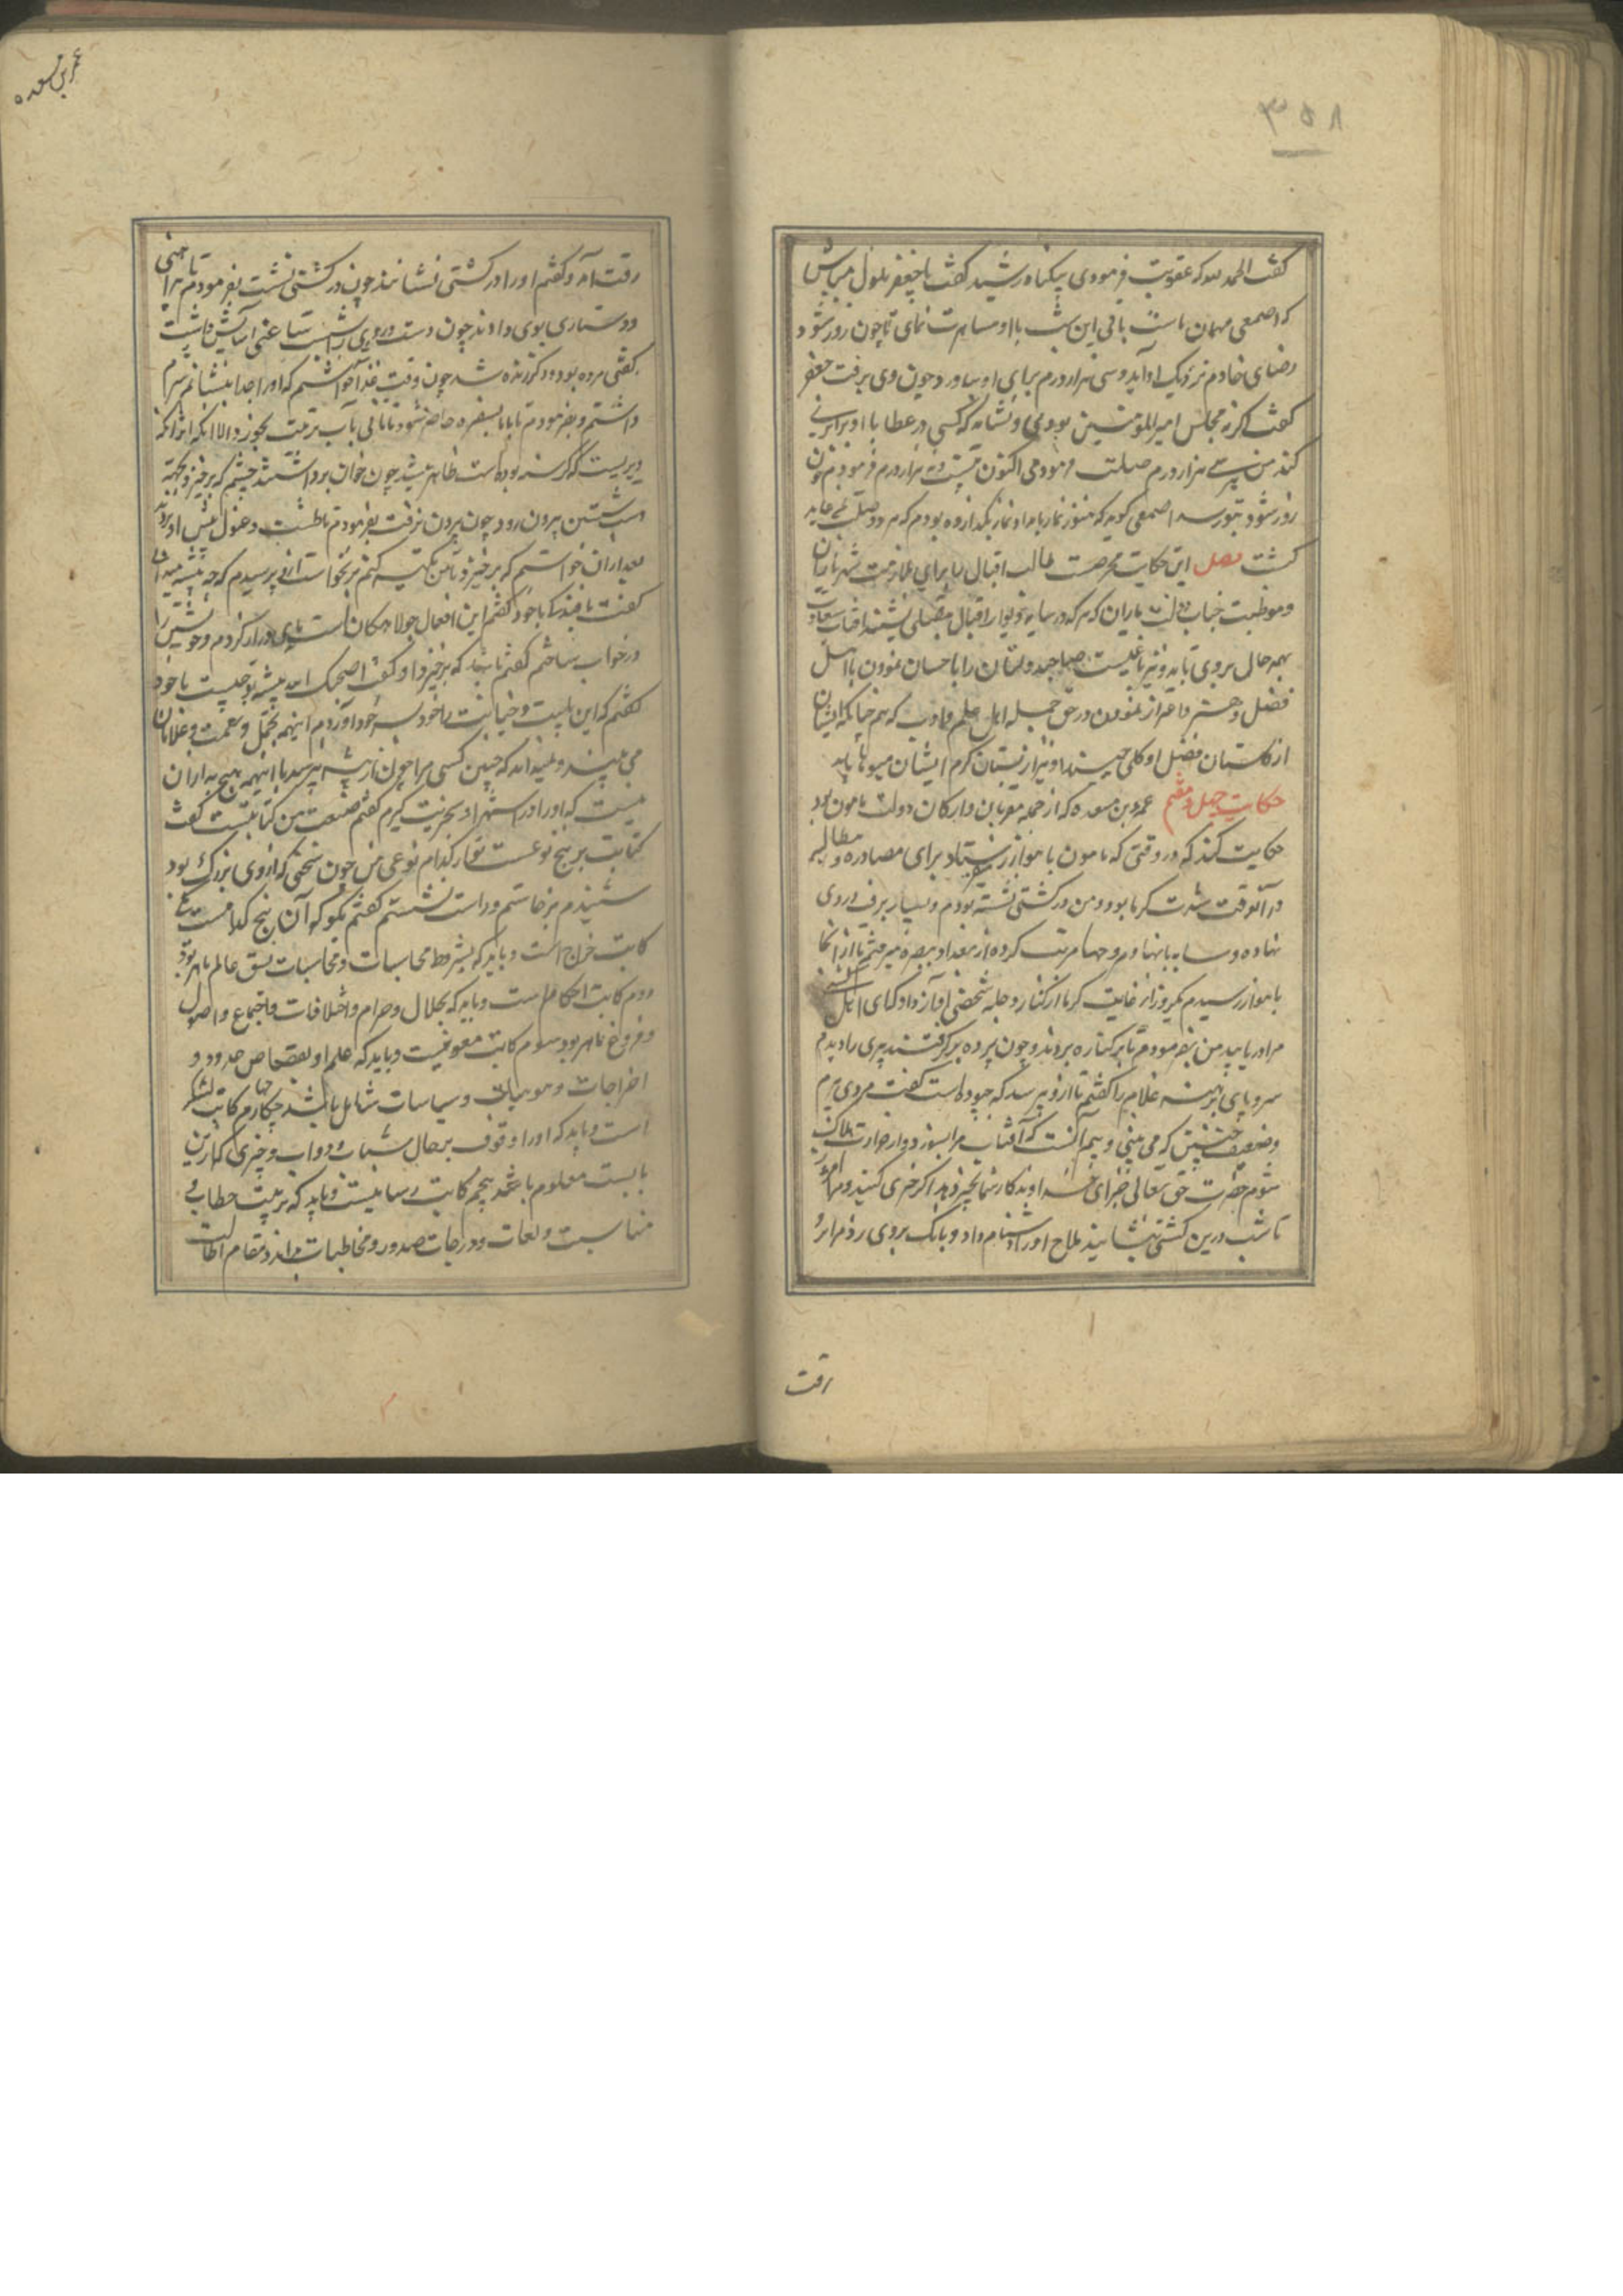 ۳۵۸
گفت الحمد لله که عقوبت فرمودی بیکناه رشید گفت یا جعفر ملول مباش
که اصمعی مهمان ماست باقی این شب با او مسامرت نمای تا چون روز شود
رضای خادم نزدیک او آید و سی هزار درم برای او بیاورد چون وی برفت جعفر
گفت اگر نه مجلس امیر المومنین بودی و نشاید که کسی در عطا با او برابری
کند من نیز سی هزار درم صلت فرمودمی اکنون بیست و نه هزار درم فرمودم چون
روز شود بتو رسد اصمعی گوید که هنوز نماز بامداد نماز نگذارده بودم که هر دو صلت بمن عاید
گشت فصل این حکایت محرضست طالب اقبال را برای ملازمت شهریاران
و مواظبت جناب دولت یاران که هر که در سایه دیوار اقبال مقبلی نشیند آفتاب سعادت
بهمه حال بروی تابد و نیز باعثیست صاحبدولتان را باحسان نمودن با اهل
فضل و هنر و اعزاز نمودن در حق جمله اهل علم و ادب که هم چنانکه ایشان
از گلستان فضل او گلی چینند او نیز از بستان کرم ایشان میوها یابد
حکایت چهل و هفتم عمرو بن مسعده که از جمله مقربان و ارکان دولت مامون بود
حکایت کند که در وقتی که مامون باهوازم فرستاد برای مصادره و مطالبه
در آنوقت شدت گرما بود و من در کشتی نشسته بودم و بسیار برف در وی
نهاده و سایه بانها و مروحها مرتب کرده از بغداد ببصره میرفتم تا از آنجا
باهواز رسیدم یکروز از غایت گرما از کنار دجله شخصی آواز داد که ای اهل کشتی
مرا دریابید من بفرمودم تا بر کناره بردند و چون پرده بر گرفتند پیری را دیدم
سر و پای برهنه غلام را گفتم تا ازو پرسد که چه بوده است گفت مردی پیرم
و ضعیف چنین که می بینی و بیم آنست که آفتاب مرا بسوزد و از حرارت هلاک
شوم حضرت حق تعالی جزای خداوند کار شما بخیر دهد اگر خیری کنید و مرا امروز
تا شب درین کشتی بنشانید ملاح او را دشنام داد و بانگ بروی زد مرا برو
رقت
عمرو بن مسعده
رقت آمد و گفتم او را در کشتی نشانند چون در کشتی نشست بفرمودم تا پیراهنی
و دستاری بوی دادند چون دست و روی بشست ساعتی آسایش داشت
گفتی مرده بود و دیگر زنده شد چون وقت غذا خواستم که او را جدا بنشانم شرم
داشتم و بفرمودم تا با ما بسفره حاضر شود تا نانی باب تربیت بخورد الا آنکه اثر آنکه
دیریست که گرسنه بوده است ظاهر میشد چون خوان برداشتند چشم که برخیزد و بجهة
دست شستن بیرون رود چون بیرون نرفت بفرمودم تا طشت و غسول پیش او بردند
بعد ازان خواستم که برخیزد تا من تکیه کنم برنخاست ازو پرسیدم که چه پیشه میدانی
گفت بافندگی با خود گفتم این افعال جولاهگان است پای دراز کردم و خویشتن را
در خواب ساختم گفتم باشد که برخیزد او گفت اصلحک الله پیشه تو چیست با خود
گفتم که این بلیت و خیانت با خود بسر خود آوردم اینهمه تجمل و نعمت و غلامان
می بیند و نمیداند که چنین کسی مرا چون از پیشه پرسد با اینهمه هیچ به ازان
نیست که او را در استهزا و سخریت گیرم گفتم صنعت من کتابتست گفت
کتابت بر پنج نوعست تو از کدام نوعی من چون سخنی که از وی بزرگ بود
شنیدم برخاستم و راست نشستم گفتم بگو که آن پنج کدامست
کاتب خراج است و باید که بشروط محاسبات و محاسبات نسق عالم ماهر بود
دوم کاتب احکام است و باید که بحلال و حرام و اختلافات و اجماع و اصول
و فروع ماهر بود سوم کاتب معونتست و باید که علم او بقصاص حدود و
جراحات و مواثبات و سیاسات شامل باشد چهارم کاتب لشکر
است و باید که او را وقوف بر حال شیات دواب و چیزی که ازین
بابست معلوم باشد پنجم کاتب رسایلست و باید که ترتیب خطاب و
مناسبت و لغات و درجات صدور و مخاطبات براند و مقام اطالت